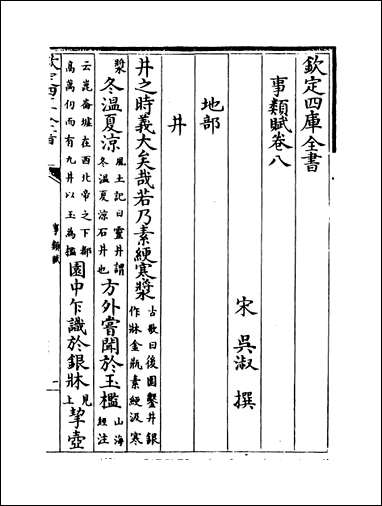 欽定四庫全書
事類賦卷八
宋 吳淑 撰
地部
井
井之時義大矣哉若乃素綆寒漿古歌曰後園鑿井銀作牀金瓶素綆汲寒
漿冬溫夏涼風土記曰靈井謂冬溫夏涼石井也方外嘗聞於玉檻山海經注
云崑崙墟在西北帝之下都高萬仞而有九井以玉為檻園中乍識於銀牀見上挈壺
事類賦
一